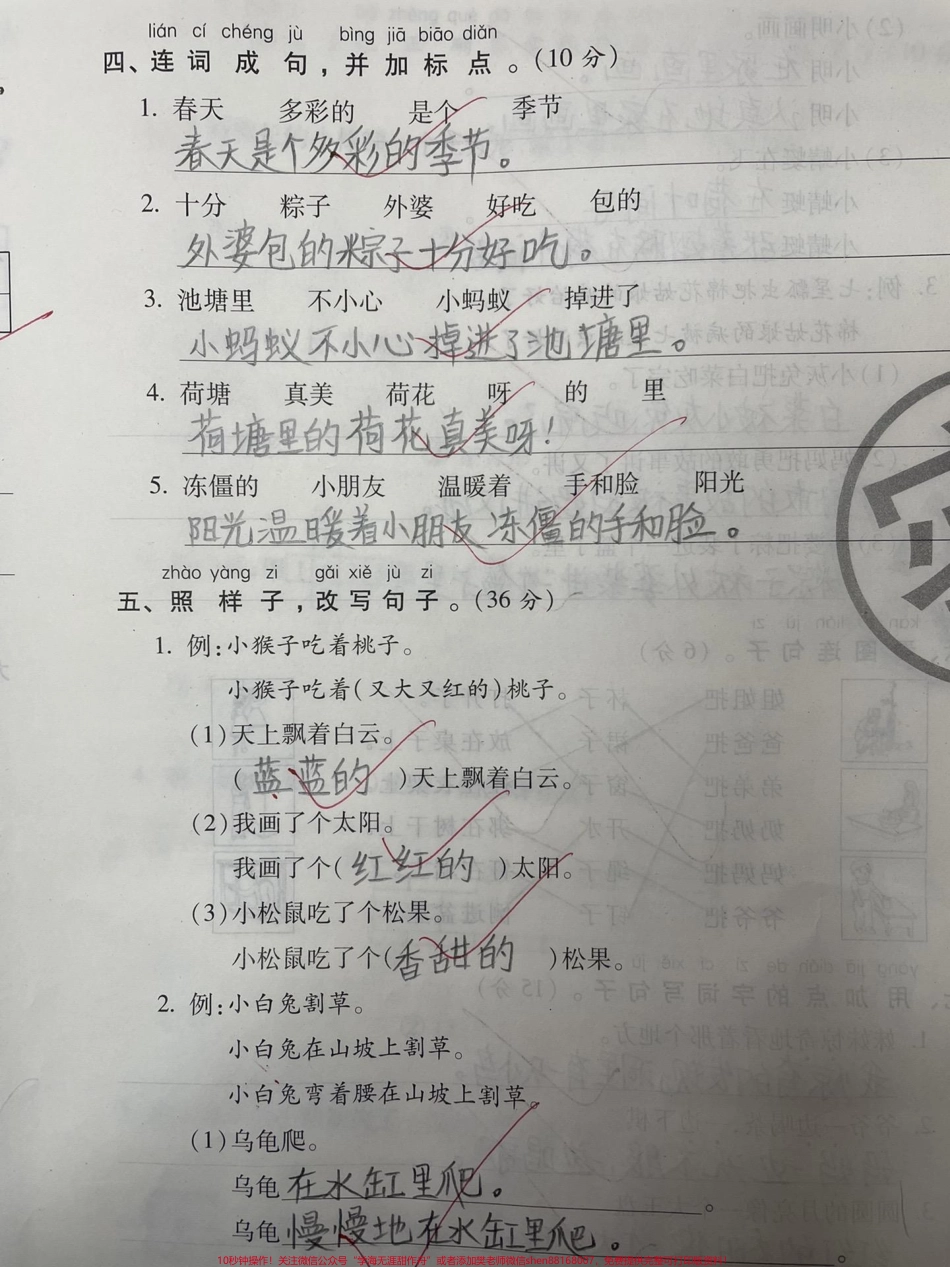 lián cí chéng jù bìng jiā biāo diǎn
四、连词成句，并加标点。（10分）
1. 春天 多彩的 是个 季节
春天是个多彩的季节。
2. 十分 粽子 外婆 好吃 包的
外婆包的粽子十分好吃。
3. 池塘里 不小心 小蚂蚁 掉进了
小蚂蚁不小心掉进了池塘里。
4. 荷塘 真美 荷花 呀 的 里
荷塘里的荷花真美呀！
5. 冻僵的 小朋友 温暖着 手和脸 阳光
阳光温暖着小朋友冻僵的手和脸。
zhào yàng zi gǎi xiě jù zi
五、照样子，改写句子。（36分）
1. 例：小猴子吃着桃子。
小猴子吃着（又大又红的）桃子。
（1）天上飘着白云。
（蓝蓝的）天上飘着白云。
（2）我画了个太阳。
我画了个（红红的）太阳。
（3）小松鼠吃了个松果。
小松鼠吃了个（香甜的）松果。
2. 例：小白兔割草。
小白兔在山坡上割草。
小白兔弯着腰在山坡上割草。
（1）乌龟爬。
乌龟在水缸里爬。。
乌龟慢慢地在水缸里爬。。